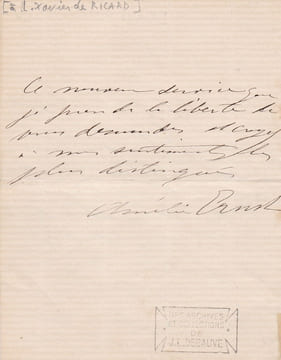 [à L. Xavier de RICARD]
Ce nouveau service que
je prends la liberté de
vous demander et croyez
à mes sentiments les
plus distingués
Amélie Ernst
DES ARCHIVES
ET COLLECTIONS
DE
J.L. DEBAUVE